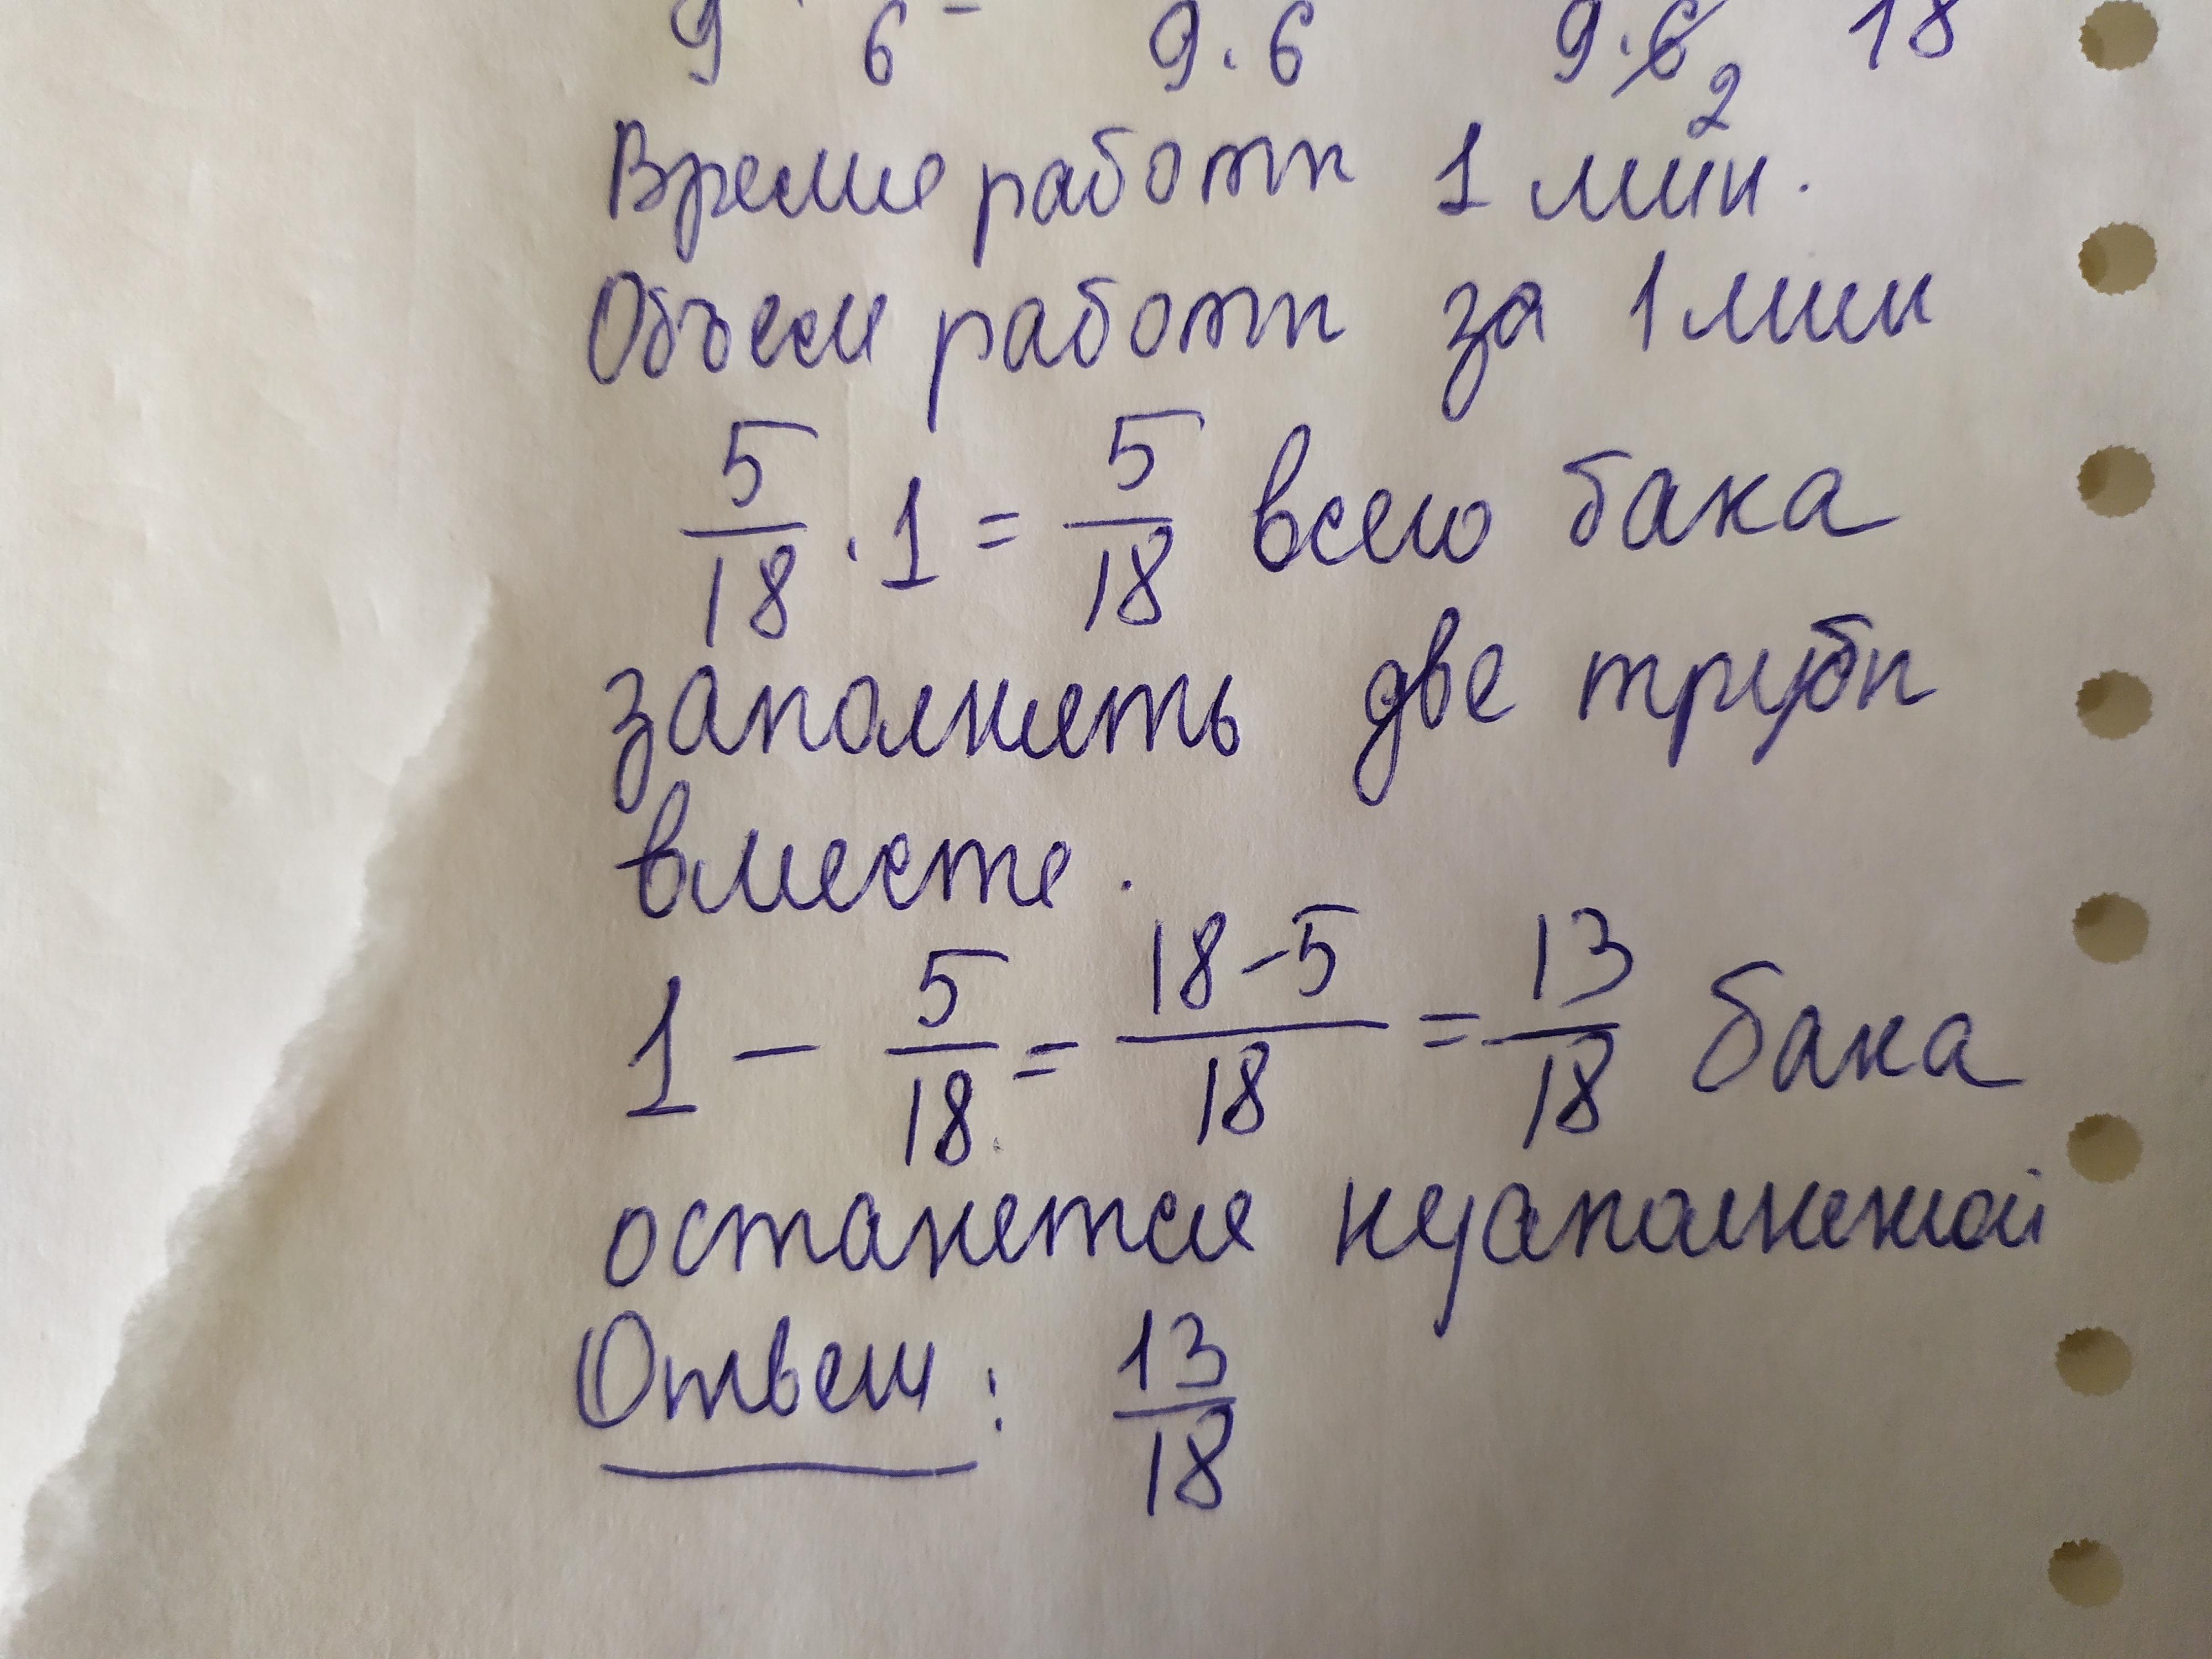 9 6 = 9·6 9·6 2 18
Время работы 1 мин.
Объем работы за 1 мин
5/18 · 1 = 5/18 всего бака
заполнять две трубы
вместе.
1 - 5/18 = 18-5/18 = 13/18 бака
останется незаполненной
Ответ: 13/18